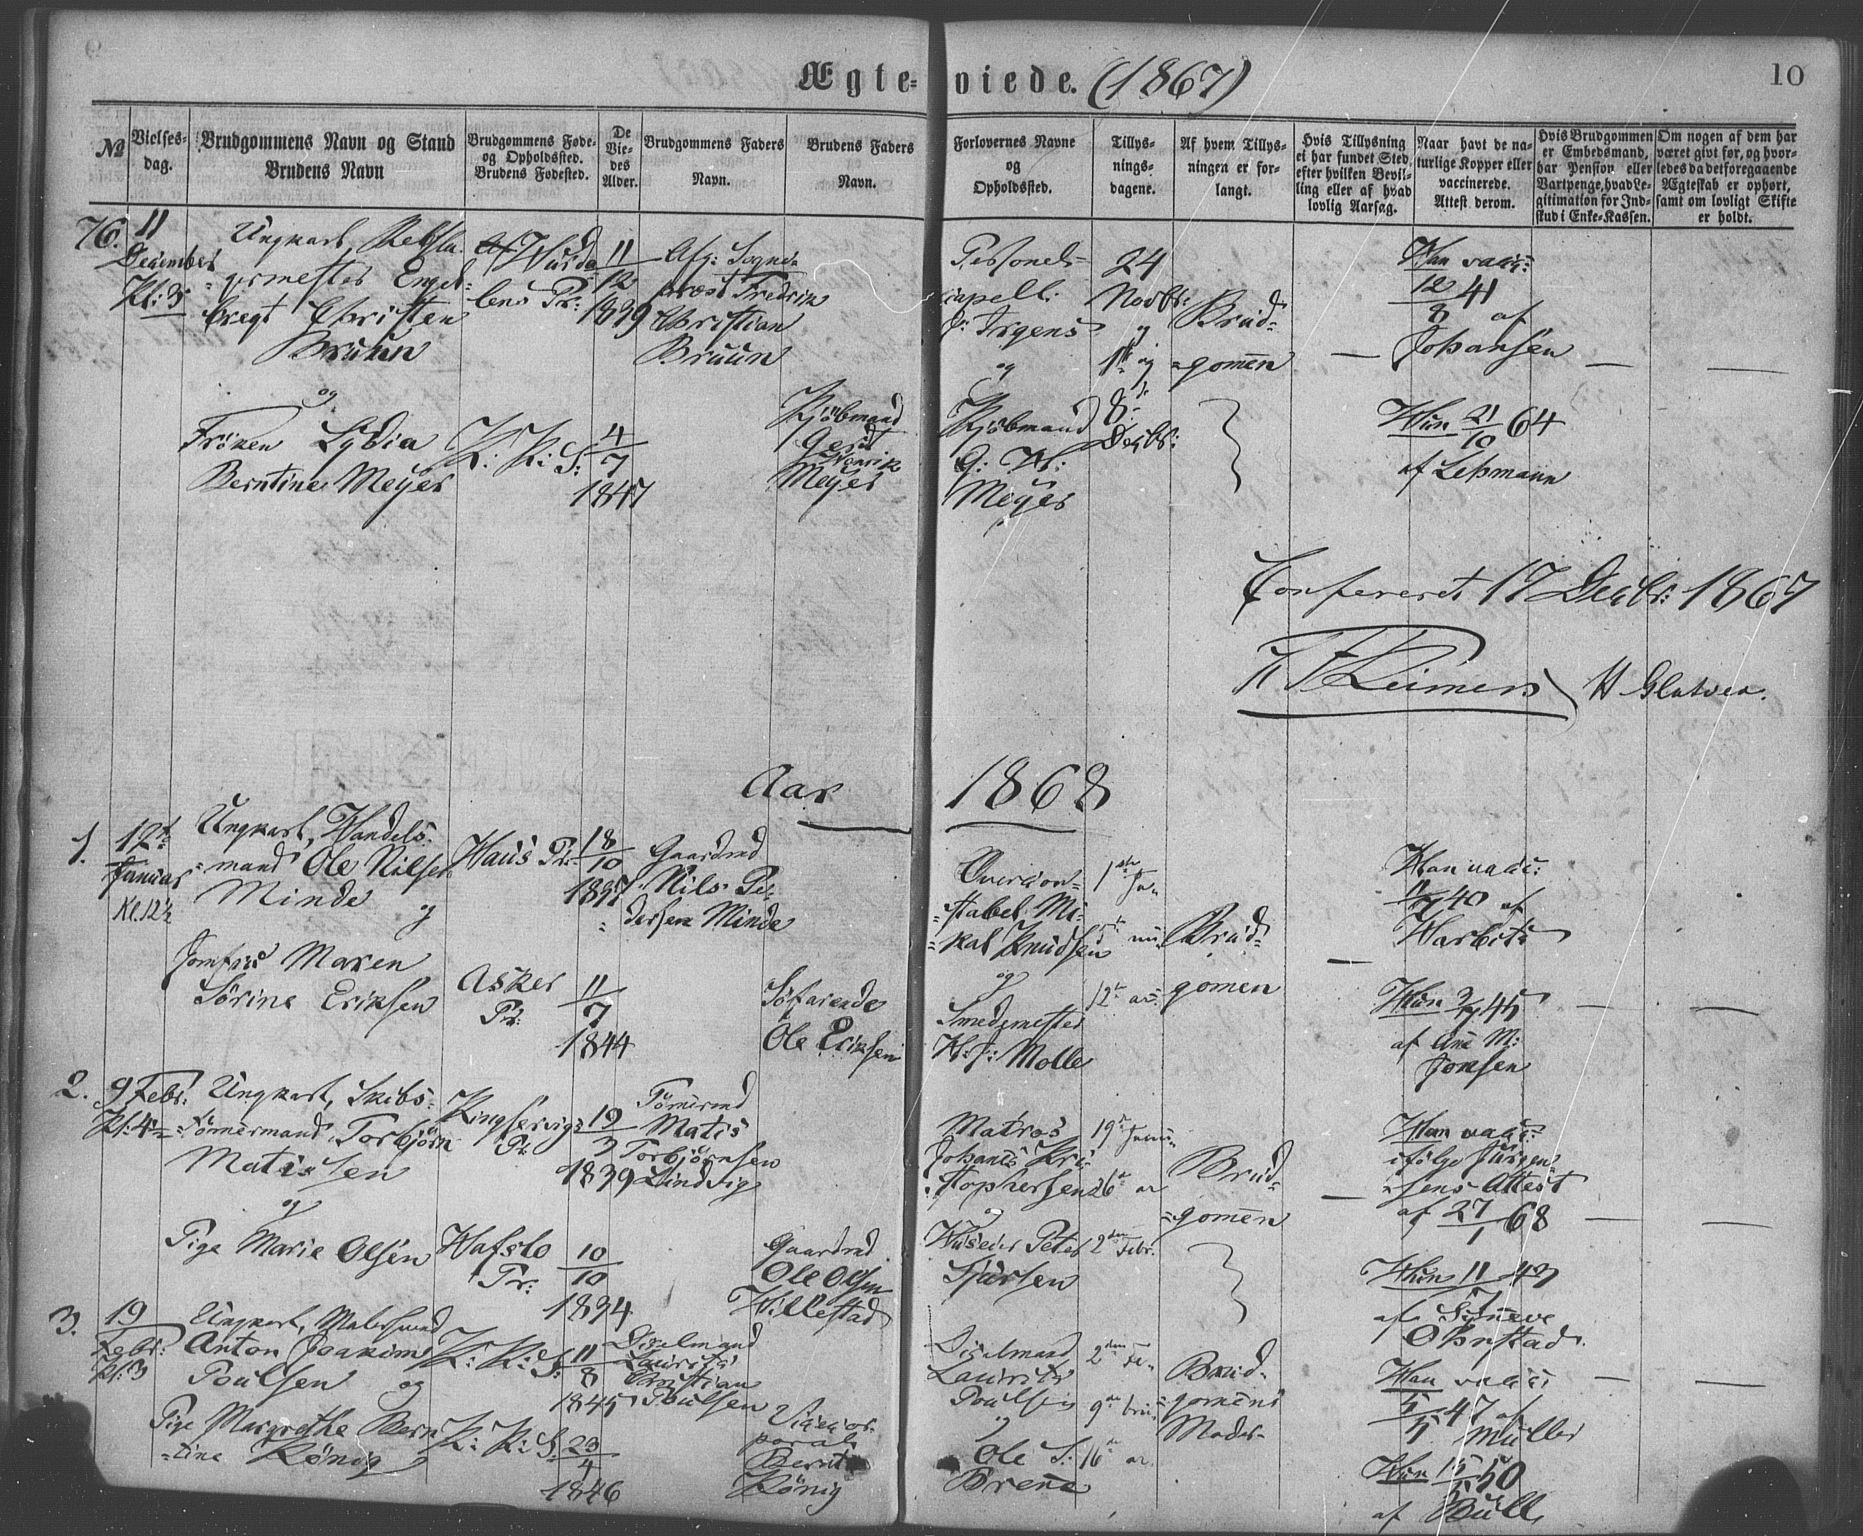 Ægte- viede. (1867)
10
№
Vielses-
dag.
Brudgommens Navn og Stand
Brudens Navn
Brudgommens Føde-
og Opholdssted.
Brudens Fødested.
De
Vie-
des
Alder.
Brudgommens Faders
Navn.
Brudens Faders
Navn.
Forlovernes Navne
og
Opholdssted.
Tillys-
nings-
dagene.
Af hvem Tillys-
ningen er for-
langt.
Hvis Tillysning
ei har fundet Sted,
efter hvilken Bevil-
ling eller af hvad
lovlig Aarsag.
Naar havt de na-
turlige Kopper eller
vaccinerede.
Attest derom.
Hvis Brudgommen
er Embedsmand,
har Pension eller
Vartpenge, hvad Le-
gitimation for Ind-
skud i Enke-Kassen.
Om nogen af dem har
været givt før, og hvor-
ledes da det foregaaende
Ægteskab er ophørt,
samt om lovligt Skifte
er holdt.
76.
11
December
Kl: 5
Ungkarl,
germester Engel-
bregt Christen
Bruun
og
Frøken Lydia
Berntine Meyer
lens Pr:
K: K: S:
11/12
1839
4/7
1847
Afg: Sogne-
præst Fredrik
Christian
Bruun
Kjøbmand
Gerit
Henrik
Meyer
Personel-
capell:
J: Irgens
og
Kjøbmand
G: H:
Meyer
24
Novbr:
og
8
Decbr:
Brud-
gomen
—
Han vacc:
12/8 41
af
Johansen
Hun 21/10 64
af Lehmann
— —
Confereret 17 Decbr: 1867
H Glatved.
Aar 1868
1.
12
Januar
Kl. 12½
Ungkarl, Handels-
mand Ole Nilsen
Minde og
Jomfru Maren
Sørine Eriksen
Haus Pr:
Asker
Pr:
18/10
1837
11/7
1844
Gaardmd
Nils Pe-
dersen Minde
Søfarende
Ole Eriksen
Overcon-
stabel Mi-
kal Knudsen
og
Smedemester
H: J: Molle
1ste Ja-
5 nu-
12 ar:
Brud-
gomen
—
Han vacc:
40 af
Harbitz
Hun 45
af Ane M:
Jonsen
— —
2.
9 Febr:
Kl: 4
Ungkarl, Skibs-
tømermand Torbjørn
Matissen
og
Pige Marie Olsen
Kingservigs
Pr:
Hafslo
Pr:
19/3
1839
10/10
1834
Tømermd
Matis
Torbjørnsen
Lindvig
Gaardmd
Ole Olsen
Hillestad
Matros
Johanes Kri-
stophersen
og
Huseier Peter
Sjursen
19 Janu-
26 ar
2den Febr.
Brud-
gomen
—
Han vacc:
ifølge Jürgen-
sens Attest
af 27/1 68
Hun 11/7 43
af Synneve
Ohnstad.
— —
3.
19
Febr:
Kl: 3
Ungkarl, Malersvend
Anton Joakim
Poulsen og
Pige Margrethe Bern-
tine König
K: K: S:
K: K: S:
11/8
1845
23/4
1846
Diselmand
Laurits
Christian
Poulsen
Bernt
König
Diselmand
Laurits
Poulsen
og
Ole S:
Brene
2den Fe-
9 bru-
16 ar
Brud-
gomens
Moder
Han vacc:
47 af
Müller
Hun 50
af Bull
— —